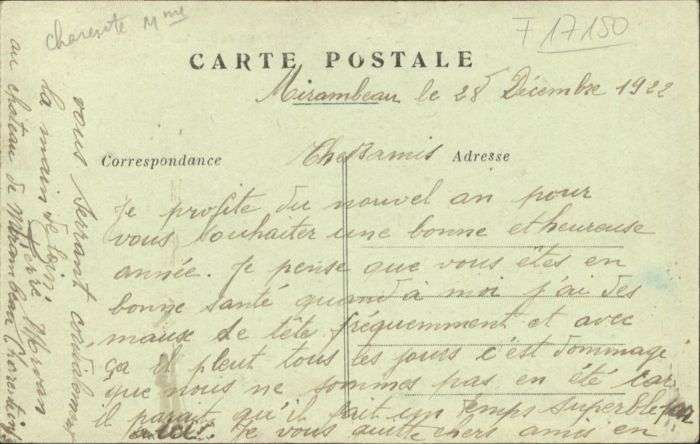 Charente Mme
F 17150
CARTE POSTALE
Mirambeau le 28 Décembre 1922
Chers amis
Correspondance Adresse
Je profite du nouvel an pour
vous souhaiter une bonne et heureuse
année. Je pense que vous êtes en
bonne santé quand à moi j'ai des
maux de tête fréquemment et avec
ça il pleut tous les jours c'est dommage
que nous ne sommes pas en été car
il parait qu'il fait un temps superbe
Je vous quitte chers amis en
vous serrant cordialement
la main de loin
Pierre
au château de Mirambeau